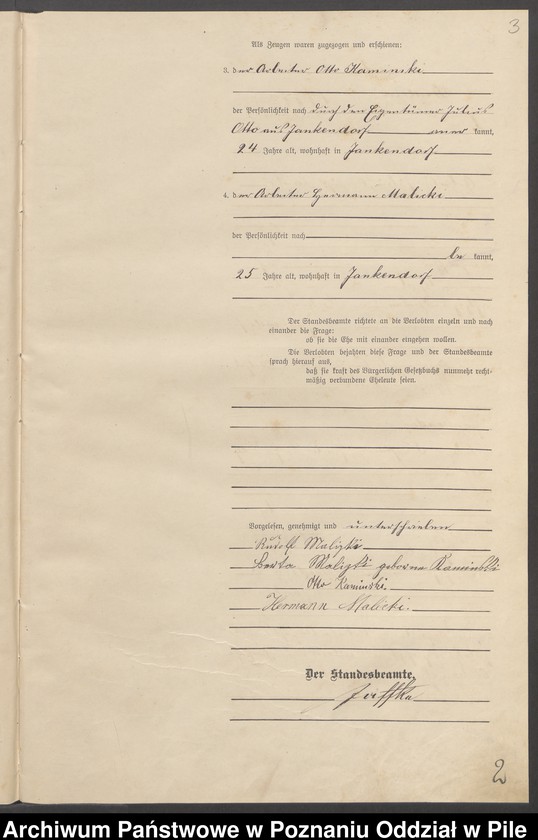 3
Als Zeugen waren zugezogen und erschienen:
3. der Arbeiter Otto Kaminski
der Persönlichkeit nach durch den Eigentümer Julius
Otto aus Jankendorf aner kannt,
24 Jahre alt, wohnhaft in Jankendorf
4. der Arbeiter Hermann Malicki
der Persönlichkeit nach
be kannt,
25 Jahre alt, wohnhaft in Jankendorf
Der Standesbeamte richtete an die Verlobten einzeln und nach
einander die Frage:
ob sie die Ehe mit einander eingehen wollen.
Die Verlobten bejahten diese Frage und der Standesbeamte
sprach hierauf aus,
daß sie kraft des Bürgerlichen Gesetzbuchs nunmehr recht-
mäßig verbundene Eheleute seien.
Vorgelesen, genehmigt und unterschrieben
Rudolf Malizki
Berta Malizki geborne Kaminski
Otto Kaminski.
Hermann Malicki.
Der Standesbeamte.
2
Archiwum Państwowe w Poznaniu Oddział w Pile